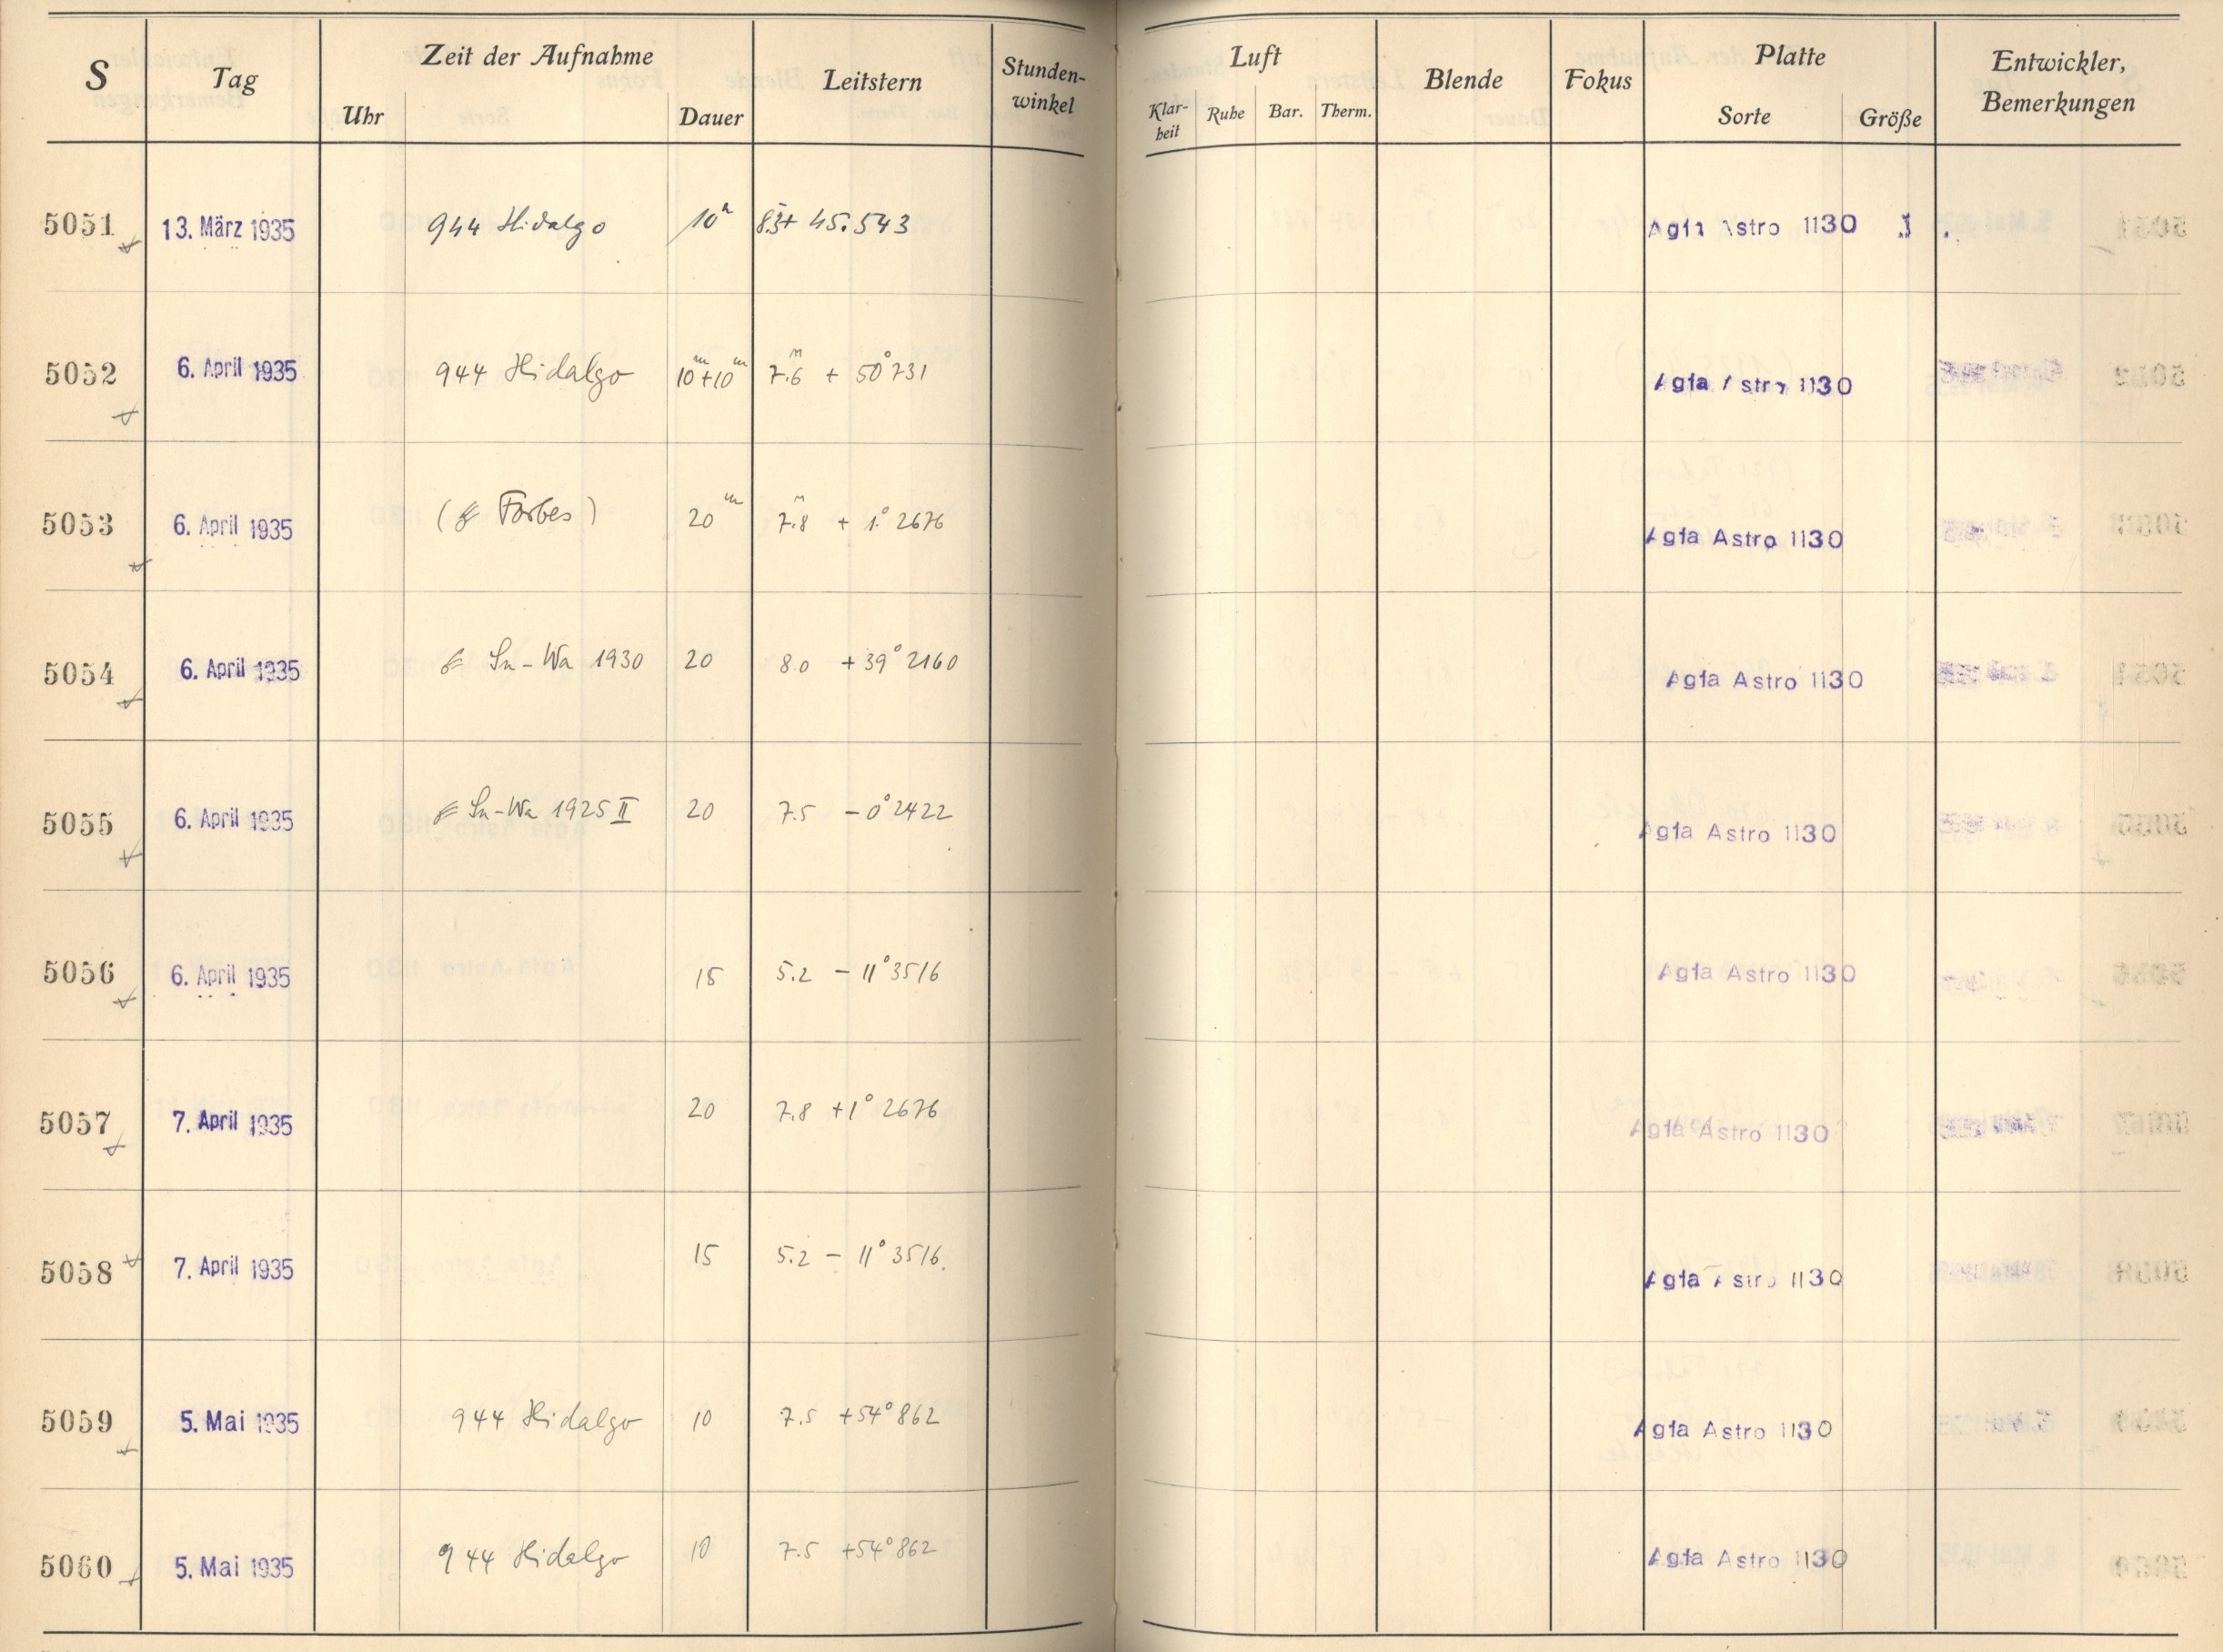 S Tag Zeit der Aufnahme Leitstern Stunden-winkel Luft Blende Fokus Platte Entwickler, Bemerkungen
Uhr Dauer Klar-heit Ruhe Bar. Therm. Sorte Größe
5051 13. März 1935 944 Hidalgo 10 + 45.543 Agfa Astro 1130
5052 6. April 1935 944 Hidalgo 10m+10m 7.m6 + 50°731 Agfa Astro 1130
5053 6. April 1935 (☄ Forbes) 20m 7.m8 + 1°2676 Agfa Astro 1130
5054 6. April 1935 ☄ Sn-Wa 1930 20 8.0 +39°2160 Agfa Astro 1130
5055 6. April 1935 ☄ Sn-Wa 1925 II 20 7.5 -0°2422 Agfa Astro 1130
5056 6. April 1935 15 5.2 - 11°3516 Agfa Astro 1130
5057 7. April 1935 20 7.8 +1°2676 Agfa Astro 1130
5058 7. April 1935 15 5.2 - 11°3516. Agfa Astro 1130
5059 5. Mai 1935 944 Hidalgo 10 7.5 +54°862 Agfa Astro 1130
5060 5. Mai 1935 944 Hidalgo 10 7.5 +54°862 Agfa Astro 1130